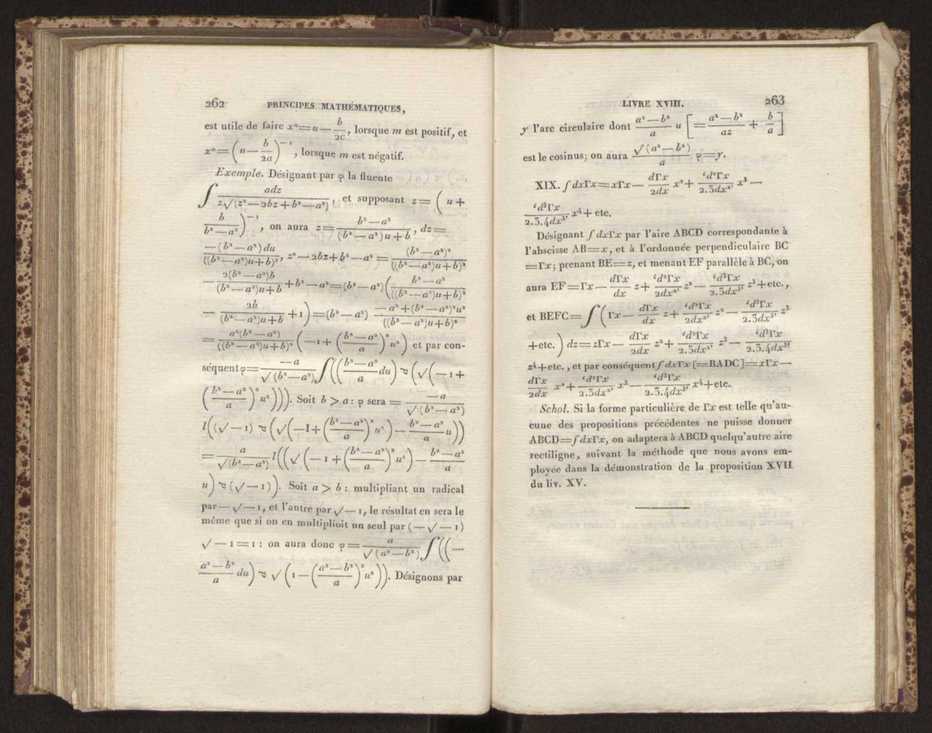 262 PRINCIPES MATHÉMATIQUES,
est utile de faire xⁿ=u— b/2c, lorsque m est positif, et
xⁿ=(u— b/2a)⁻¹, lorsque m est négatif.
Exemple. Désignant par φ la fluente
∫ adz/z√(z²—2bz+b²—a²), et supposant z=(u+
b/b²—a²)⁻¹, on aura z= b²—a²/(b²—a²)u+b, dz=
—(b²—a²)du/((b²—a²)u+b)², z²—2bz+b²—a²= (b²—a²)²/((b²—a²)u+b)²
— 2(b²—a²)b/(b²—a²)u+b +b²—a²=(b²—a²)(b²—a²/((b²—a²)u+b)²
— 2b/(b²—a²)u+b +1)=(b²—a²) —a²+(b²—a²)²u²/((b²—a²)u+b)²
= a²(b²—a²)/((b²—a²)u+b)² (—1+(b²—a²/a)²u²) et par con-
séquent φ= —a/√(b²—a²) ∫((b²—a²/a du) (√(—1+
(b²—a²/a)²u²))). Soit b > a: φ sera = —a/√(b²—a²)
l((√—1) (√(—1+(b²—a²/a)²u²)— b²—a²/a u))
= a/√(b²—a²) l((√(—1+(b²—a²/a)²u²)— b²—a²/a
u) (√—1)). Soit a > b: multipliant un radical
par —√—1, et l'autre par √—1, le résultat en sera le
même que si on en multiplioit un seul par (—√—1)
√—1=1: on aura donc φ= a/√(a²—b²) ∫((—
a²—b²/a du) √(1—(a²—b²/a)²u²)). Désignons par
LIVRE XVIII. 263
y l'arc circulaire dont a²—b²/a u [= a²—b²/az + b/a]
est le cosinus; on aura √(a²—b²)/a φ=y.
XIX. ∫dxΓx=xΓx— dΓx/2dx x²+ ‘d²Γx/2.3dx²’ x³—
‘d³Γx/2.3.4dx³’ x⁴+etc.
Désignant ∫dxΓx par l'aire ABCD correspondante à
l'abscisse AB=x, et à l'ordonnée perpendiculaire BC
=Γx; prenant BE=z, et menant EF parallèle à BC, on
aura EF=Γx— dΓx/dx z+ ‘d²Γx/2dx²’ z²— ‘d³Γx/2.3dx³’ z³+etc.,
et BEFC=∫(Γx— dΓx/dx z+ ‘d²Γx/2dx²’ z²— ‘d³Γx/2.3dx³’ z³
+etc.)dz=zΓx— dΓx/2dx z²+ ‘d²Γx/2.3dx²’ z³— ‘d³Γx/2.3.4dx³’
z⁴+etc., et par conséquent ∫dxΓx [=BADC]=xΓx—
dΓx/2dx x²+ ‘d²Γx/2.3dx²’ x³— ‘d³Γx/2.3.4dx³’ x⁴+etc.
Schol. Si la forme particulière de Γx est telle qu'au-
cune des propositions précédentes ne puisse donner
ABCD=∫dxΓx, on adaptera à ABCD quelqu'autre aire
rectiligne, suivant la méthode que nous avons em-
ployée dans la démonstration de la proposition XVII
du liv. XV.